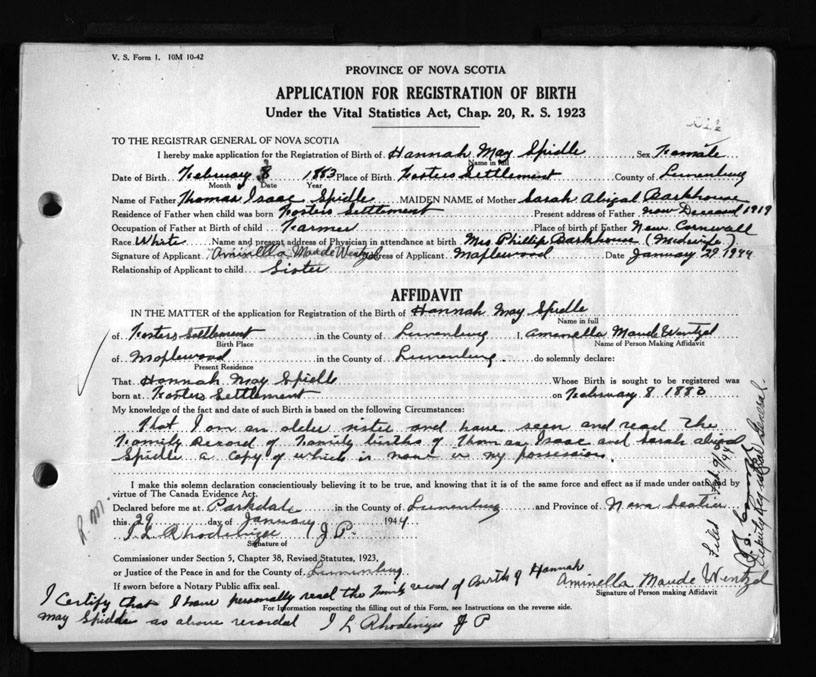 V. S. Form 1. 10M 10-42
PROVINCE OF NOVA SCOTIA
APPLICATION FOR REGISTRATION OF BIRTH
Under the Vital Statistics Act, Chap. 20, R. S. 1923
TO THE REGISTRAR GENERAL OF NOVA SCOTIA
I hereby make application for the Registration of Birth of Hannah May Spidle Sex Female
Name in full
Date of Birth February 8 1883 Place of Birth Fosters Settlement County of Lunenburg
Month Date Year
Name of Father Thomas Isaac Spidle MAIDEN NAME of Mother Sarah Abigal Barkhouse
Residence of Father when child was born Fosters Settlement Present address of Father now Deceasd 1919
Occupation of Father at Birth of child Farmer Place of birth of Father New Cornwall
Race White Name and present address of Physician in attendance at birth Mrs Phillip Barkhouse (Midwife)
Signature of Applicant Aminella Maude Wentzel Address of Applicant Maplewood Date January 29 1944
Relationship of Applicant to child Sister
AFFIDAVIT
IN THE MATTER of the application for Registration of the Birth of Hannah May Spidle
Name in full
of Fosters Settlement in the County of Lunenburg I, Aminella Maude Wentzel
Birth Place Name of Person Making Affidavit
of Maplewood in the County of Lunenburg do solemnly declare:
Present Residence
That Hannah May Spidle Whose Birth is sought to be registered was
born at Fosters Settlement on February 8 1883
My knowledge of the fact and date of such Birth is based on the following Circumstances:
That I am an older sister and have seen and read the
Family Record of Family births of Thomas Isaac and Sarah abigal
Spidle a copy of which is now in my possession.
I make this solemn declaration conscientiously believing it to be true, and knowing that it is of the same force and effect as if made under oath and by
virtue of The Canada Evidence Act.
Declared before me at Parkdale in the County of Lunenburg and Province of Nova Scotia
this 29 day of January 1944
I L Rhodenizer J P.
Signature of
Commissioner under Section 5, Chapter 38, Revised Statutes, 1923,
or Justice of the Peace in and for the County of Lunenburg
If sworn before a Notary Public affix seal.
Aminella Maude Wentzel
Signature of Person making Affidavit
I Certify that I have personally read the Family record of Birth of Hannah
For Information respecting the filling out of this Form, see Instructions on the reverse side.
May Spidle as above recorded I L Rhodenizer J P
Filed Feb. 9/44
Deputy Registrar General.